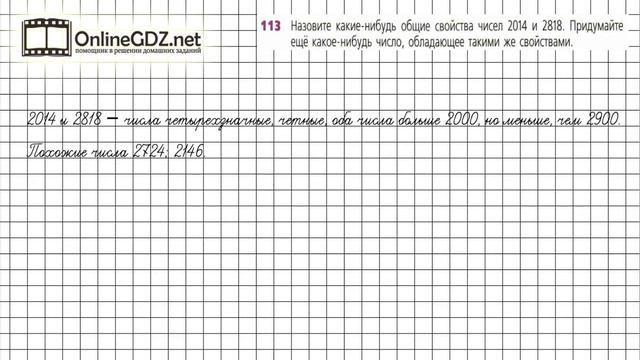 OnlineGDZ.net
помощник в решении домашних заданий
113 Назовите какие-нибудь общие свойства чисел 2014 и 2818. Придумайте
ещё какое-нибудь число, обладающее такими же свойствами.
2014 и 2818 – числа четырехзначные, четные, оба числа больше 2000, но меньше, чем 2900.
Похожие числа 2724; 2146.